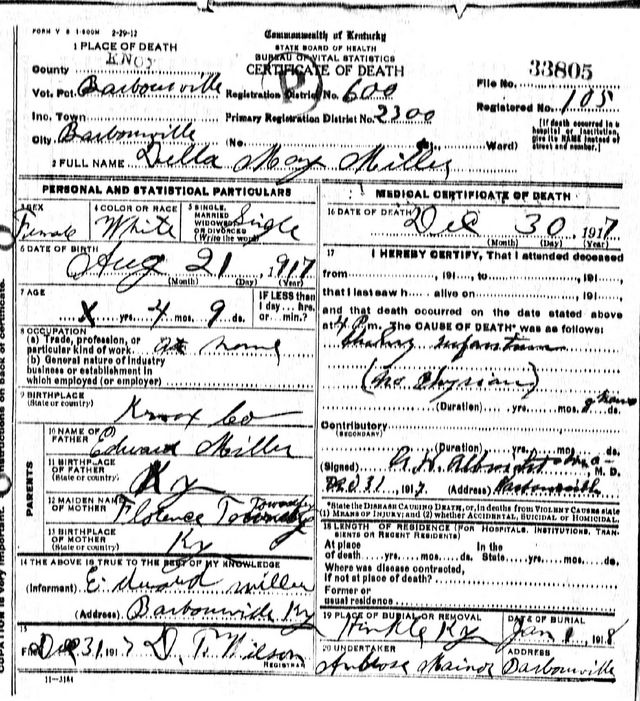 FORM V S 1-500M 2-29-12
Commonwealth of Kentucky
STATE BOARD OF HEALTH
BUREAU OF VITAL STATISTICS
CERTIFICATE OF DEATH
1 PLACE OF DEATH
County KNOX
File No. 33805
Vot. Pct. Barbourville Registration District No. 600
Registered No. 105
Inc. Town Primary Registration District No. 2300
City Barbourville (No. St., Ward)
[If death occurred in a hospital or institution, give its NAME instead of street and number.]
2 FULL NAME Della May Miller
PERSONAL AND STATISTICAL PARTICULARS
3 SEX Female
4 COLOR OR RACE White
5 SINGLE, MARRIED WIDOWED OR DIVORCED (Write the word) Single
6 DATE OF BIRTH Aug 21, 1917
(Month) (Day) (Year)
7 AGE X yrs. 4 mos. 9 ds.
IF LESS than 1 day... hrs. or... min.?
8 OCCUPATION
(a) Trade, profession, or
particular kind of work at home
(b) General nature of industry
business or establishment in
which employed (or employer)
9 BIRTHPLACE
(State or country) Knox Co
PARENTS
10 NAME OF FATHER Edward Miller
11 BIRTHPLACE OF FATHER (State or country) Ky
12 MAIDEN NAME OF MOTHER Florence
13 BIRTHPLACE OF MOTHER (State or country) Ky
14 THE ABOVE IS TRUE TO THE BEST OF MY KNOWLEDGE
(Informant) Edward Miller
(Address) Barbourville Ky
15
Filed Dec 31, 1917 D. T. Wilson
REGISTRAR
11-3184
MEDICAL CERTIFICATE OF DEATH
16 DATE OF DEATH Dec 30, 1917
(Month) (Day) (Year)
17 I HEREBY CERTIFY, That I attended deceased
from 191, to 191,
that I last saw h alive on 191,
and that death occurred on the date stated above
at 4 P.m. The CAUSE OF DEATH* was as follows:
(no Physian)
(Duration) yrs. mos. ds.
Contributory
(SECONDARY)
(Duration) yrs. mos. ds.
(Signed) M. D.
Dec 31, 1917 (Address) Barbourville
*State the DISEASE CAUSING DEATH, or, in deaths from VIOLENT CAUSES state (1) MEANS OF INJURY; and (2) whether ACCIDENTAL, SUICIDAL or HOMICIDAL
18 LENGTH OF RESIDENCE (FOR HOSPITALS, INSTITUTIONS, TRANSIENTS OR RECENT RESIDENTS)
At place of death yrs. mos. ds. In the State yrs. mos. ds.
Where was disease contracted,
if not at place of death?
Former or
usual residence
19 PLACE OF BURIAL OR REMOVAL Hinkle Ky
DATE OF BURIAL Jan 1 1918
20 UNDERTAKER Ambrose
ADDRESS Barbourville